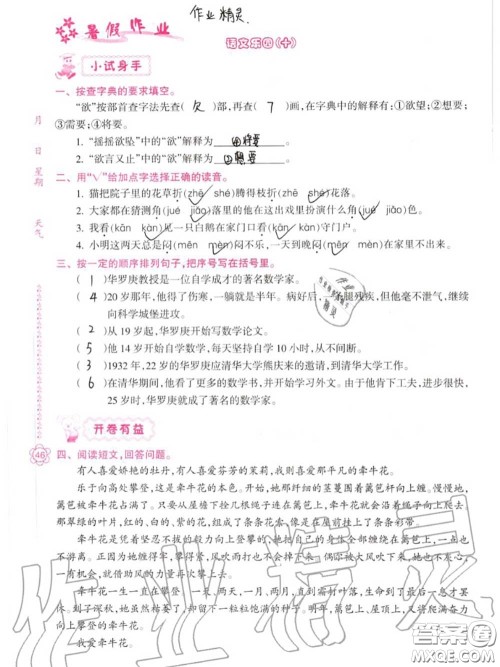 作业精灵
暑假作业
语文乐园(十)
小试身手
一、按查字典的要求填空。
“欲”按部首查字法先查( 欠 )部,再查( 7 )画,在字典中的解释有:①欲望;②想要;
③需要;④将要。
1. “摇摇欲坠”中的“欲”解释为 ④将要 。
2. “欲言又止”中的“欲”解释为 ②想要 。
二、用“√”给加点字选择正确的读音。
1. 猫把院子里的花草折(zhē shé)腾得枝折(zhé shé)花落。
2. 大家都在猜测角(jué jiǎo)落里的他在这出戏里扮演什么角(jué jiǎo)色。
3. 我看(kān kàn)见一只白鹅在我们农家看(kān kàn)守门户。
4. 小明这两天总是闷(mēn mèn)闷不乐,一天到晚闷(mēn mèn)在家里看电视。
三、按一定的顺序排列句子,把序号写在括号里。
( 1 )华罗庚教授是一位自学成才的著名数学家。
( )20岁那年,他得了伤寒,一躺就是半年。病好后,一腿残疾,但他毫不泄气,继续
向科学城堡进攻。
( )从19岁起,华罗庚开始写数学论文。
( 5 )他14岁开始自学数学,每天坚持自学10小时,从不间断。
( 3 )1932年,22岁的华罗庚应清华大学熊庆来的邀请,到清华大学工作。
( 6 )在清华期间,他看了更多的数学书,并开始学习外文。由于他肯下工夫,进步很
快,华罗庚就成了著名的数学家。
开卷有益
四、阅读短文,回答问题。
有人喜爱娇艳的牡丹,有人喜爱芬芳的茉莉,我则喜爱那平凡的牵牛花。
乐于向高处攀登,这是牵牛花的本色。开始,她那纤细的茎蔓围着篱笆杆向上缠,
篱笆被牵牛花一点点占领。只要篱笆有多高,牵牛花就会沿着篱笆爬多高。
那翠绿的叶片,红的、白的、紫的花,组成了条条花索,像是在屋前挂上了条条彩带。
牵牛花是凭着坚韧不拔的毅力向上攀登的。她把自己的身体全部缠在篱笆上,一点也
不游离。正因为她缠得牢,攀得紧,风吹不断,雨打不掉。偶尔被大风吹下来,她也不灰心,
一有机会,就借助大风的力量再次攀上去。
牵牛花一生一直在攀登,一天,一月,两月,直到霜打叶落,生命到了最后一息才肯罢
休。到了深秋,她虽然枯萎了,却把一串串种子留在篱笆上,准备来年继续完成攀登的任
务。
我爱牵牛花。
46
月
日
星期
天气
作业精灵
答案圈
MXQE.COM